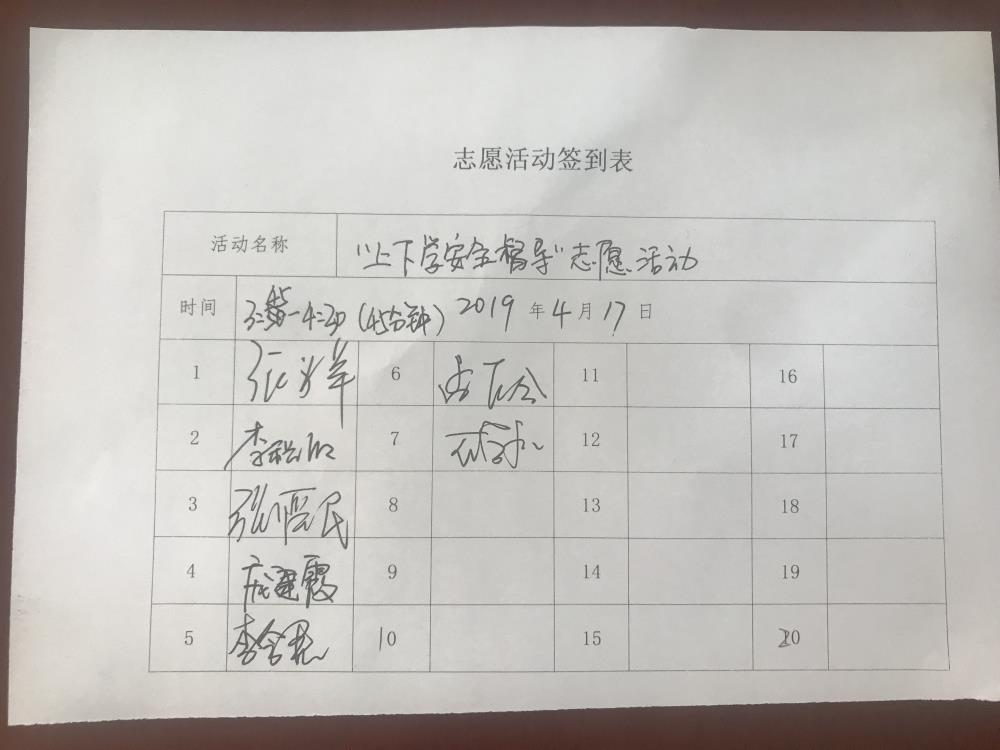 志愿活动签到表
活动名称 “上下学安全督导”志愿活动
时间 3:45-4:30（45分钟） 2019 年 4 月 17 日
1 张 6 11 16
2 李 7 12 17
3 张 民 8 13 18
4 成建霞 9 14 19
5 李含 10 15 20